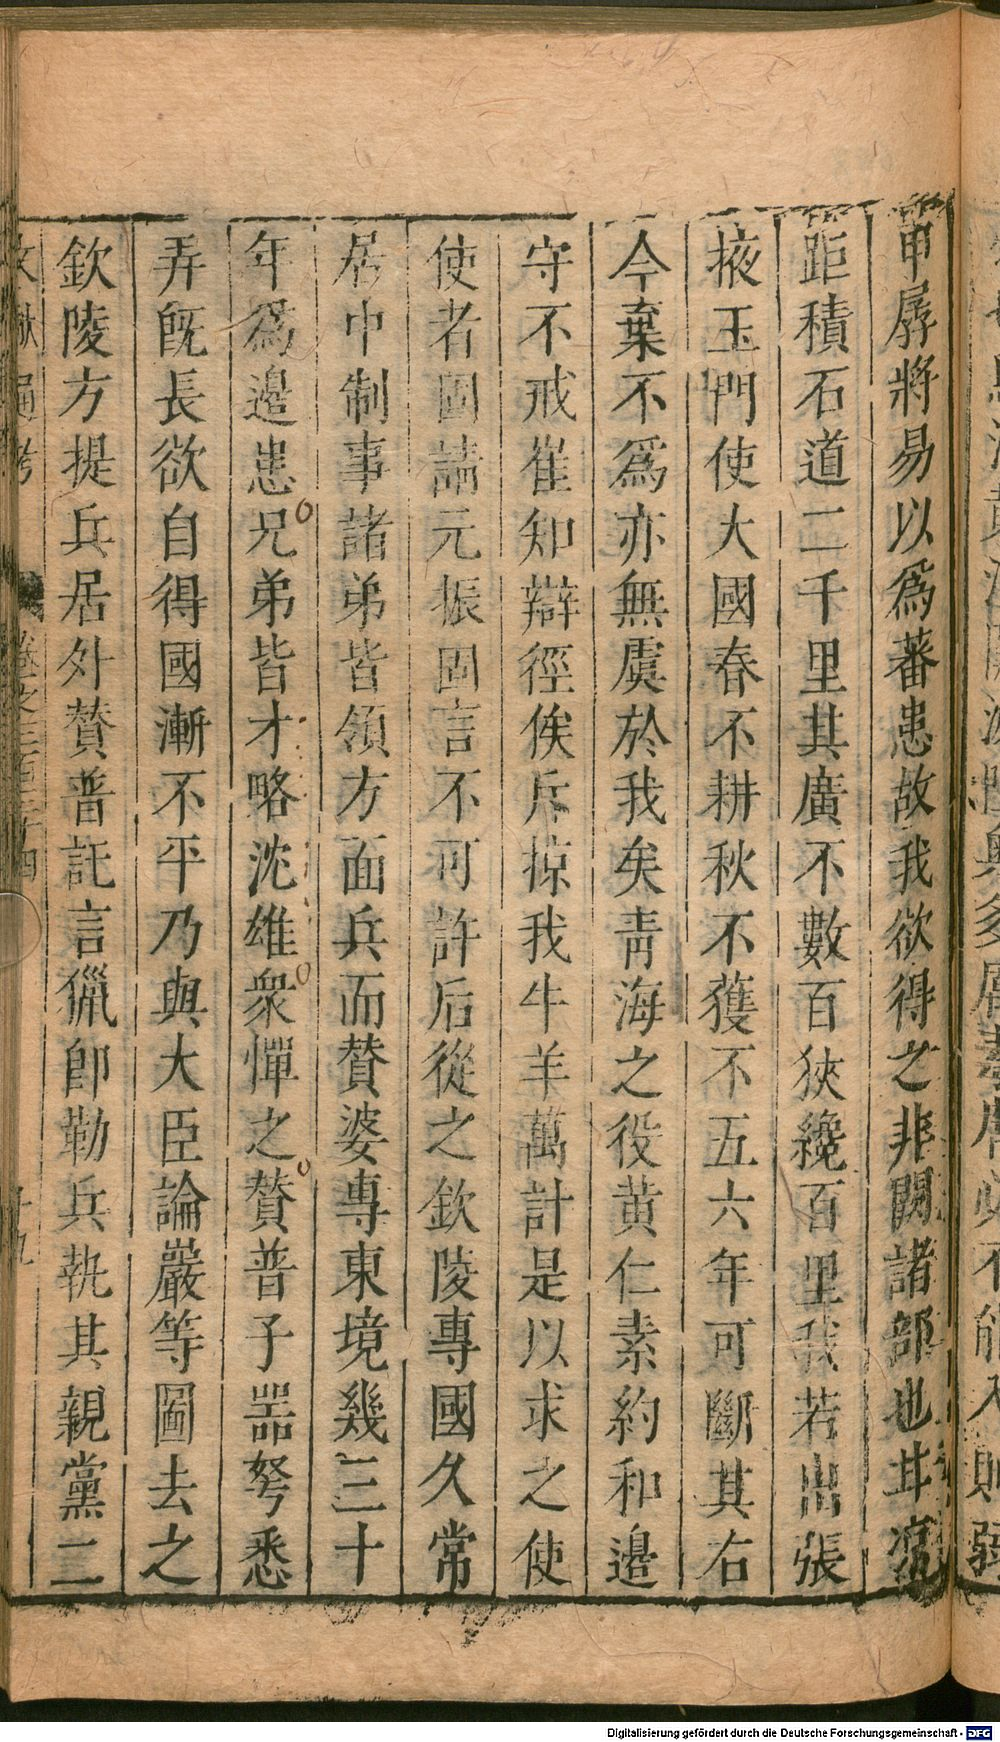 甲孱將易以爲蕃患故我欲得之非闚諸部也甘涼
距積石道二千里其廣不數百狹纔百里我若出張
掖玉門使大國春不耕秋不穫不五六年可斷其右
今棄不爲亦無虞於我矣青海之役黃仁素約和邊
守不戒崔知辯徑俟斥掠我牛羊萬計是以求之使
使者固請元振固言不可許后從之欽陵專國久常
居中制事諸弟皆領方面兵而贊婆專東境幾三十
年爲邊患兄弟皆才略沈雄衆憚之贊普子器弩悉
弄旣長欲自得國漸不平乃與大臣論嚴等圖去之
欽陵方提兵居外贊普託言獵卽勒兵執其親黨二
文獻通考 卷之三百三十四 十九
Digitalisierung gefördert durch die Deutsche Forschungsgemeinschaft - DFG